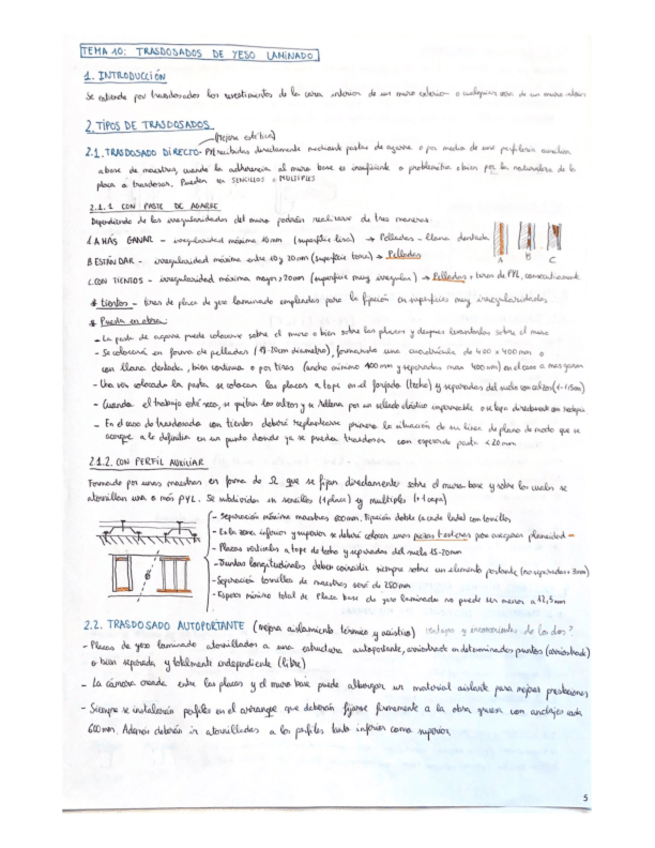 TEMA 10: TRASDOSADOS DE YESO LAMINADO
1. INTRODUCCIÓN
Se entiende por trasdosados los revestimientos de la cara interior de un muro exterior o cualquier cara de un muro interior
2. TIPOS DE TRASDOSADOS
(Mejora estética)
2.1. TRASDOSADO DIRECTO - PYL recibidas directamente mediante pastas de agarre o por medio de una perfilería auxiliar
a base de maestras, cuando la adherencia al muro base es insuficiente o problemática o bien por la naturaleza de la
placa a trasdosar. Pueden ser SENCILLOS o MÚLTIPLES
2.1.1 CON PASTE DE AGARRE
Dependiendo de las irregularidades del muro podrán realizarse de tres maneras:
A MÁS GANAR - irregularidad máxima 10mm (superficie lisa) → Pelladas - llana dentada
B ESTÁNDAR - irregularidad máxima entre 10 y 20mm (superficie tosca) → Pelladas
C. CON TIENTOS - irregularidad máxima mayor > 20mm (superficie muy irregular) → Pelladas + tiras de PYL
A B C
* tientos - tiras de placa de yeso laminado empleadas para la fijación en superficies muy irregularidades
* Puesta en obra:
- La pasta de agarre puede colocarse sobre el muro o bien sobre las placas y después levantarlas sobre el muro
- Se colocarán en forma de pelladas ( diámetro), formando una cuadrícula de 400 x 400 mm o
con llana dentada, bien continua o por tiras (ancho mínimo 100 mm y separadas max 400 mm) en el caso a mas ganar
- Una vez colocada la pasta se colocan las placas a tope en el forjado (techo) y separadas del suelo con calzos (1-1,5cm)
- Cuando el trabajo esté seco, se quitan los calzos y se rellena por un sellado elástico impermeable o se tapa directamente con
- En el caso de trasdosado con tientos deberá replantearse primero la situación de su línea de plano de modo que se
acople a la definitiva en un punto donde ya se pueda trasdosar con espesor de pasta < 20mm
2.1.2. CON PERFIL AUXILIAR
Formado por unas maestras en forma de Ω que se fijan directamente sobre el muro base y sobre las cuales se
atornillan una o más PYL. Se subdividen en sencillos (1 placa) y multiples (+1 capa)
- Separación máxima maestras 600mm. Fijación doble (a cada lado) con tornillos
- En la zona inferior y superior se deberá colocar unas piezas para asegurar planeidad -
- Placas verticales a tope de techo y separadas del suelo 15-20mm
- Juntas longitudinales deben coincidir siempre sobre un elemento portante (no separadas + 3mm)
- Separación tornillos de maestras será de 250mm
- Espesor mínimo total de placa base de yeso laminado no puede ser menor a 12,5mm
2.2. TRASDOSADO AUTOPORTANTE (mejora aislamiento térmico y acústico) ventajas y inconvenientes de los dos?
- Placas de yeso laminado atornilladas a una estructura autoportante, arriostrada en determinados puntos (arriostrado)
o bien separada y totalmente independiente (libre)
- La cámara creada entre las placas y el muro base puede albergar un material aislante para mejorar prestaciones
- Siempre se instalarán perfiles en el arranque que deberán fijarse firmemente a la obra gruesa con anclajes cada
600mm. Además deberán ir atornilladas a los perfiles tanto inferior como superior
5